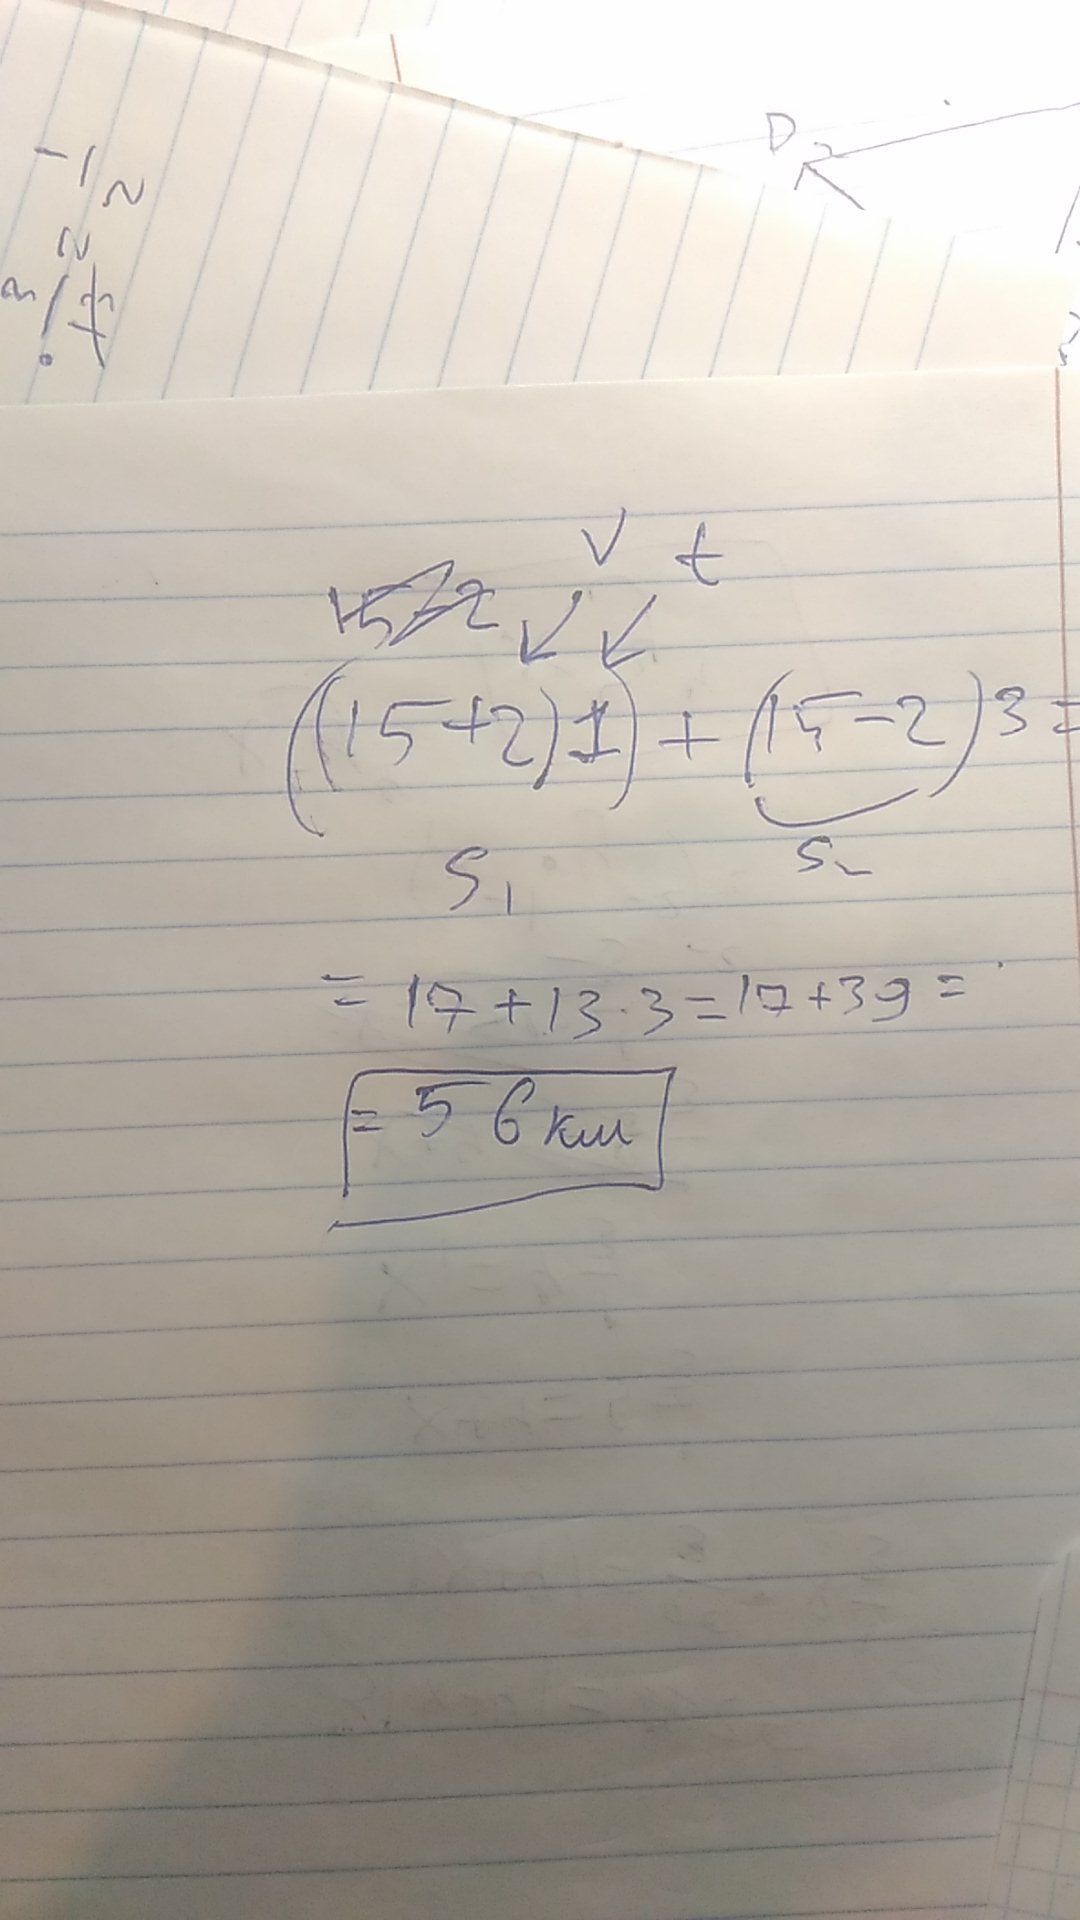 D
V t
((15+2)1) + (15-2)3=
S₁
S₂
= 17 + 13 · 3 = 17 + 39 =
= 56 км